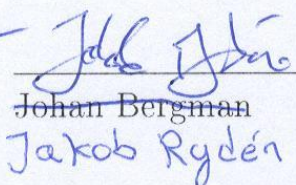 Johan Bergman
Jakob Rydén